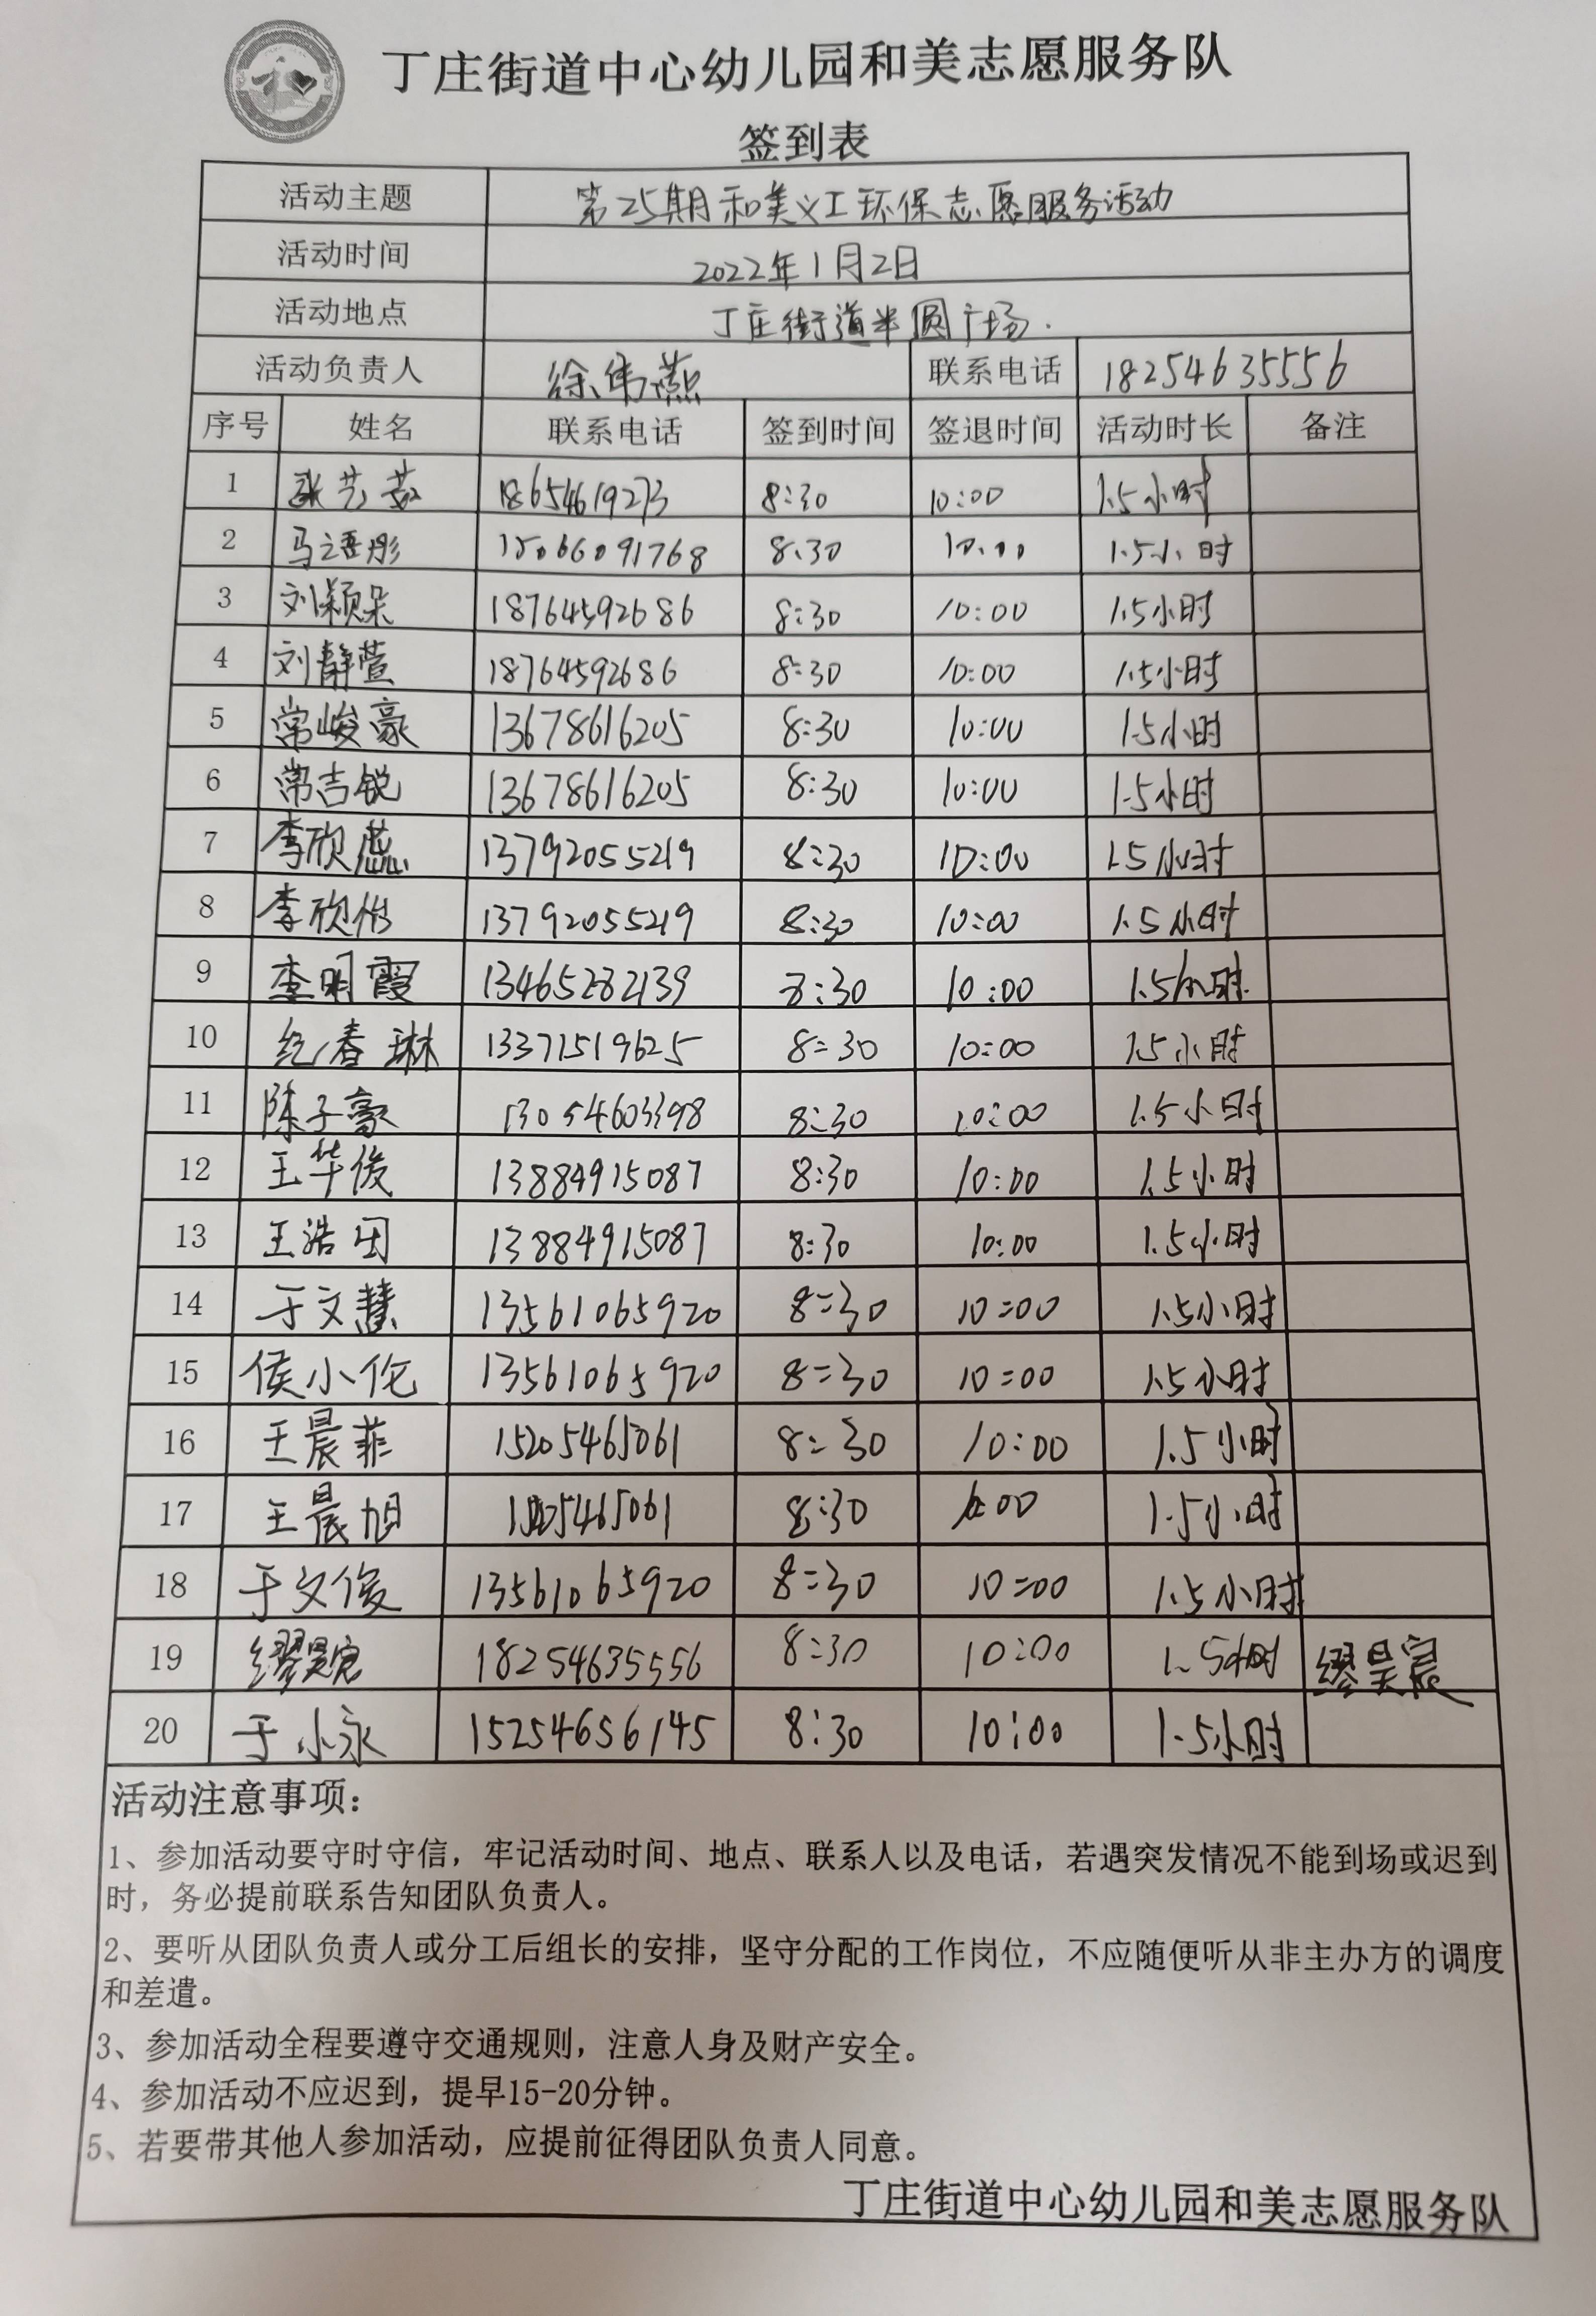 丁庄街道中心幼儿园和美志愿服务队
签到表
活动主题 第25期和美义工环保志愿服务活动
活动时间 2022年1月2日
活动地点 丁庄街道半圆广场.
活动负责人 徐伟燕 联系电话 18254635556
序号 姓名 联系电话 签到时间 签退时间 活动时长 备注
1 张艺茹 18654619273 8:30 10:00 1.5小时
2 马语彤 15066091768 8:30 10:00 1.5小时
3 刘颖呆 18764592686 8:30 10:00 1.5小时
4 刘静萱 18764592686 8:30 10:00 1.5小时
5 常峻豪 13678616205 8:30 10:00 1.5小时
6 常吉锐 13678616205 8:30 10:00 1.5小时
7 李欣蕊 13792055219 8:30 10:00 1.5小时
8 李欣怡 13792055219 8:30 10:00 1.5小时
9 李明霞 13465282139 8:30 10:00 1.5小时
10 纪春琳 13371519625 8:30 10:00 1.5小时
11 陈子豪 13054603398 8:30 10:00 1.5小时
12 王华俊 13884915087 8:30 10:00 1.5小时
13 王浩 13884915087 8:30 10:00 1.5小时
14 于文慧 13561065920 8:30 10:00 1.5小时
15 侯小伦 13561065920 8:30 10:00 1.5小时
16 王晨菲 15205465061 8:30 10:00 1.5小时
17 王晨旭 8:30 1.5小时
18 于文俊 13561065920 8:30 10:00 1.5小时
19 缪昊宸 18254635556 8:30 10:00 1.5小时 缪昊宸
20 于小永 15254656145 8:30 10:00 1.5小时
活动注意事项：
1、参加活动要守时守信，牢记活动时间、地点、联系人以及电话，若遇突发情况不能到场或迟到
时，务必提前联系告知团队负责人。
2、要听从团队负责人或分工后组长的安排，坚守分配的工作岗位，不应随便听从非主办方的调度
和差遣。
3、参加活动全程要遵守交通规则，注意人身及财产安全。
4、参加活动不应迟到，提早15-20分钟。
5、若要带其他人参加活动，应提前征得团队负责人同意。
丁庄街道中心幼儿园和美志愿服务队